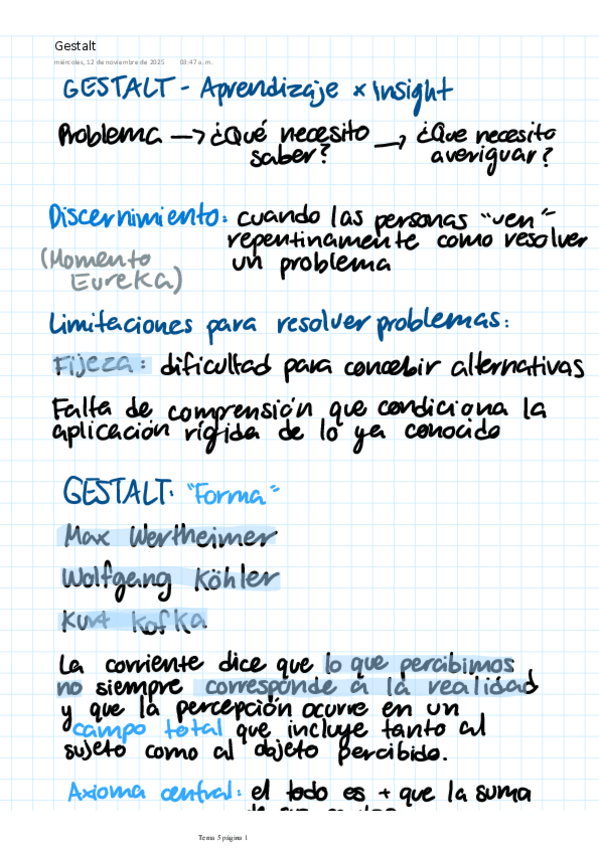 Gestalt
miércoles, 12 de noviembre de 2025 03:47 a. m.
GESTALT - Aprendizaje x Insight
Problema → ¿Qué necesito → ¿Que necesito
saber? averiguar?
Discernimiento: cuando las personas "ven"
repentinamente como resolver
(Momento un problema
Eureka)
Limitaciones para resolver problemas:
Fijeza: dificultad para concebir alternativas
Falta de comprensión que condiciona la
aplicación rígida de lo ya conocido
GESTALT: "Forma"
Max Wertheimer
Wolfgang Köhler
Kurt Kofka
La corriente dice que lo que percibimos
no siempre corresponde a la realidad
y que la percepción ocurre en un
campo total que incluye tanto al
sujeto como al objeto percibido.
Axioma central: el todo es + que la suma
de sus
Tema 5 página 1